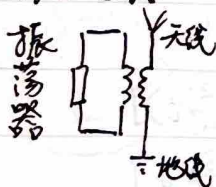 振荡器
天线
地线